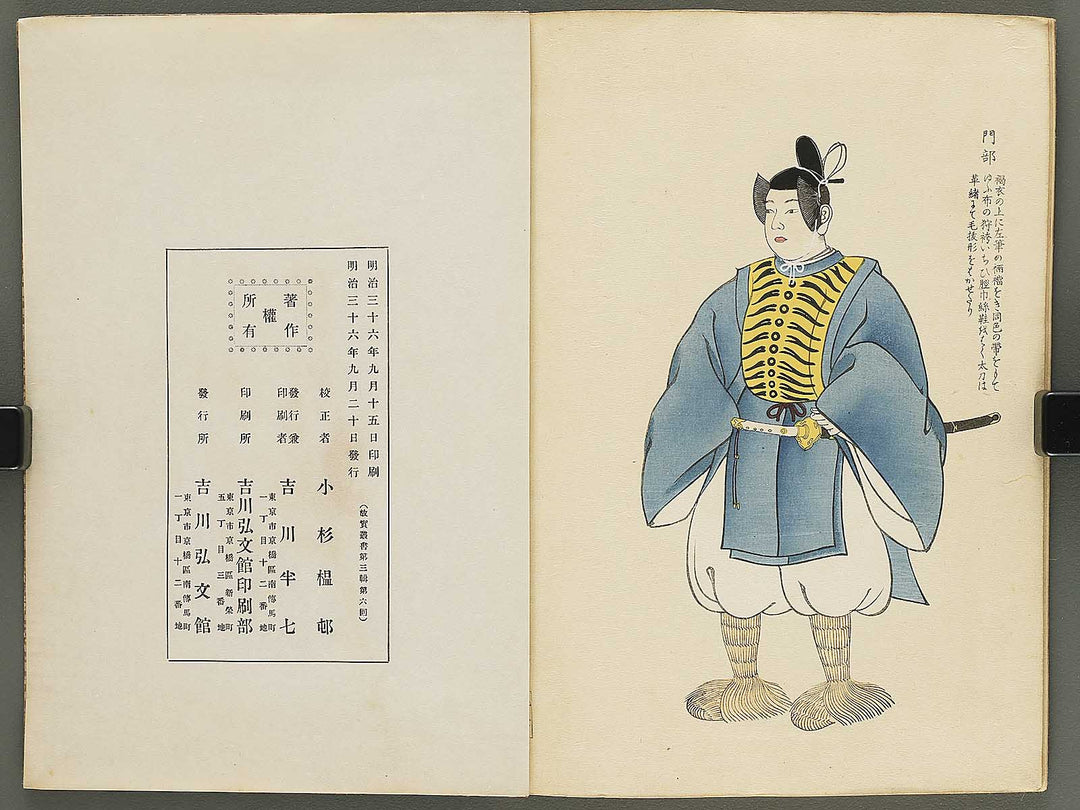 門部
褐衣の上に左筆の裲襠をき同色の帶をもて
ゆふ布の狩袴いちひ脛巾絲鞋をはく太刀は
革緒にて毛拔形をはかせたり
明治三十六年九月十五日印刷
明治三十六年九月二十日發行
(故實叢書第三輯第六回)
著作
權
所有
校正者 小杉榲邨
發行兼
印刷者 吉川半七
東京市京橋區南傳馬町
一丁目十二番地
印刷所 吉川弘文館印刷部
東京市京橋區新榮町
五丁目三番地
發行所 吉川弘文館
東京市京橋區南傳馬町
一丁目十二番地